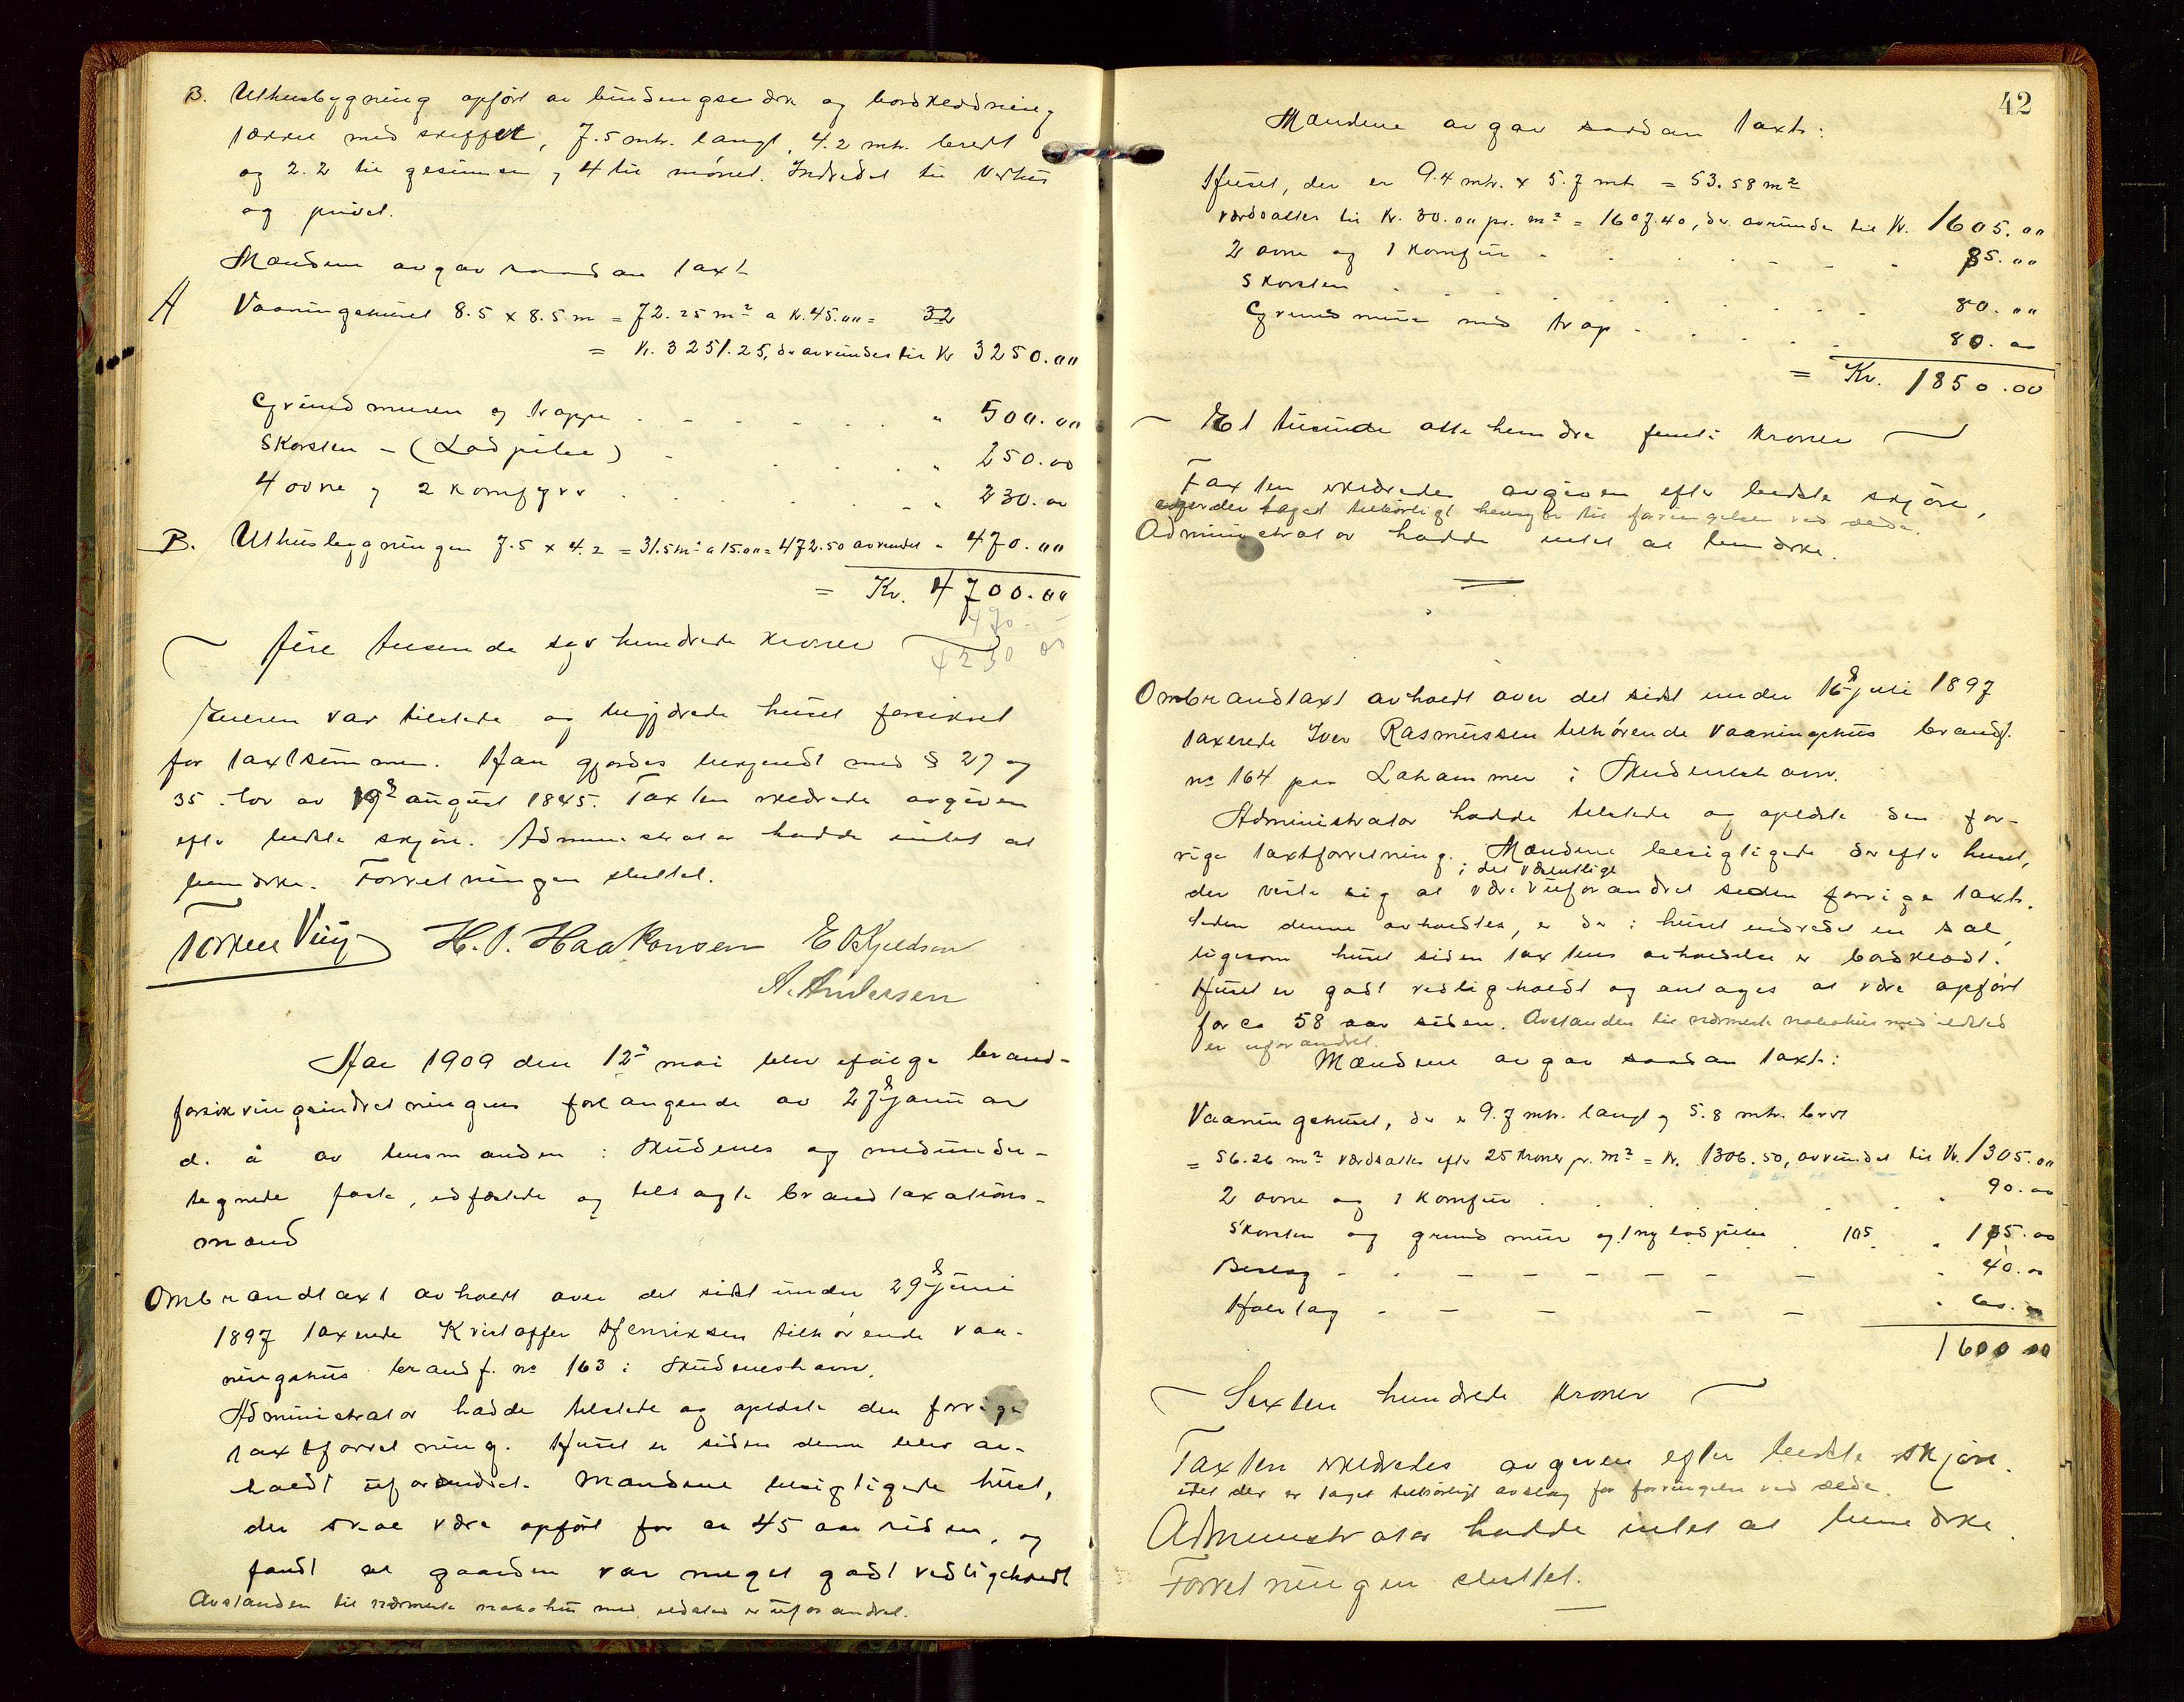 B. Uthusbygning opført av bindingsverk og bordklædning
tækket med skiffer, 7.5 mtr. langt, 4.2 mtr. bredt
og 2.2 til gesimsen og 4 til mønet. Indredet til vedhus
og privet.
Mændene avgav saadan taxt
A Vaaningshuset 8.5 x 8.5 m = 72.25 m² a kr. 45.00 = 32
= Kr. 3251.25, der avrundes til Kr 3250.00
Grundmuren og trappe . . . . . " 500.00
Skorsten - (Lodpibe) . . . . " 250.00
4 ovne og 2 komfyrer . . . . " 230.00
B. Uthusbygningen 7.5 x 4.2 = 31.5 m² a 15.00 = 472.50 avrundet " 470.00
= Kr. 4700.00
470
4230 00
Fire tusende syv hundrede kroner
Eieren var tilstede og begjærede huset forsikret
for taxtsummen. Han gjordes bekjendt med § 27 og
35 lov av 19de august 1845. Taxten erklærede avgiven
efter bedste skjøn. Administrator hadde intet at
bemærke. Forretningen sluttet.
Torkel Viig H. P. Haakonsen E. Kjeldsen
A. Andersen
Aar 1909 den 12te mai blev ifølge brand-
forsikringsindretningens forlangende av 27de januar
d. å av lensmanden i Skudenes og medunder-
tegnede faste, edfæstede og tilsagte brandtaxations-
mænd
Ombrandtaxt avholdt over det sidst under 29de juni
1897 taxerede Kristoffer Henriksen tilhørende vaa-
ningshus brandf. no 163 i Skudeneshavn.
Administrator hadde tilstede og oplæste den forrige
taxtforretning. Huset er siden denne blev av-
holdt uforandret. Mændene besigtigede huset,
der skal være opført for ca 45 aar siden, og
fandt at gaarden var meget godt vedligeholdt
Avstanden til nærmeste nabohus med ildsted er uforandret.
42
Mændene avgav saadan taxt:
Huset, der er 9.4 mtr. x 5.7 mtr = 53.58 m²
værdsattes til Kr. 30.00 pr. m² = 1607.40, der avrundes til Kr. 1605.00
2 ovne og 1 komfur . . . . . . 85.00
Skorsten . . . . . . . 80.00
Grundmur med trap . . . . . 80.00
= Kr. 1850.00
Et tusinde otte hundre femti kroner
Taxten erklæredes avgiven efter bedste skjøn,
der taget tilbørligt hensyn til forringelsen ved ælde.
Administrator hadde intet at bemærke.
Ombrandtaxt avholdt over det sidst under 16de juli 1897
taxerede Iver Rasmussen tilhørende vaaningshus brandf.
no 164 paa Lahammer i Skudeneshavn.
Administrator hadde tilstede og oplæste den for-
rige taxtforretning. Mændene besigtigede derefter huset,
i det væsentlige
der viste sig at være uforandret siden forrige taxt.
Siden denne avholdtes, er der i huset indredet en sal,
ligesom huset siden taxtens avholdelse er bordklædt.
Huset er godt vedligeholdt og antages at være opført
for ca 58 aar siden. Avstanden til nærmeste nabohus med ildsted
er uforandret.
Mændene avgav saadan taxt:
Vaaningshuset, der er 9.7 mtr. langt og 5.8 mtr. bret
= 56.26 m² værdsattes efter 25 kroner pr. m² = Kr. 1306.50, avrundet til Kr. 1305.00
2 ovne og 1 komfur . . . . . . 90.00
Skorsten og grundmur og 1 ny lodpibe . 105 . " 105.00
Beslag - - - - - - - - 40.00
Hvertag - - - - - - " 60.00
1600 00
Sexten hundrede kroner
Taxten erklæredes avgiven efter bedste skjøn.
idet der er taget tilbørligt avslag for forringelse ved ælde.
Administrator hadde intet at bemærke.
Forretningen sluttet.